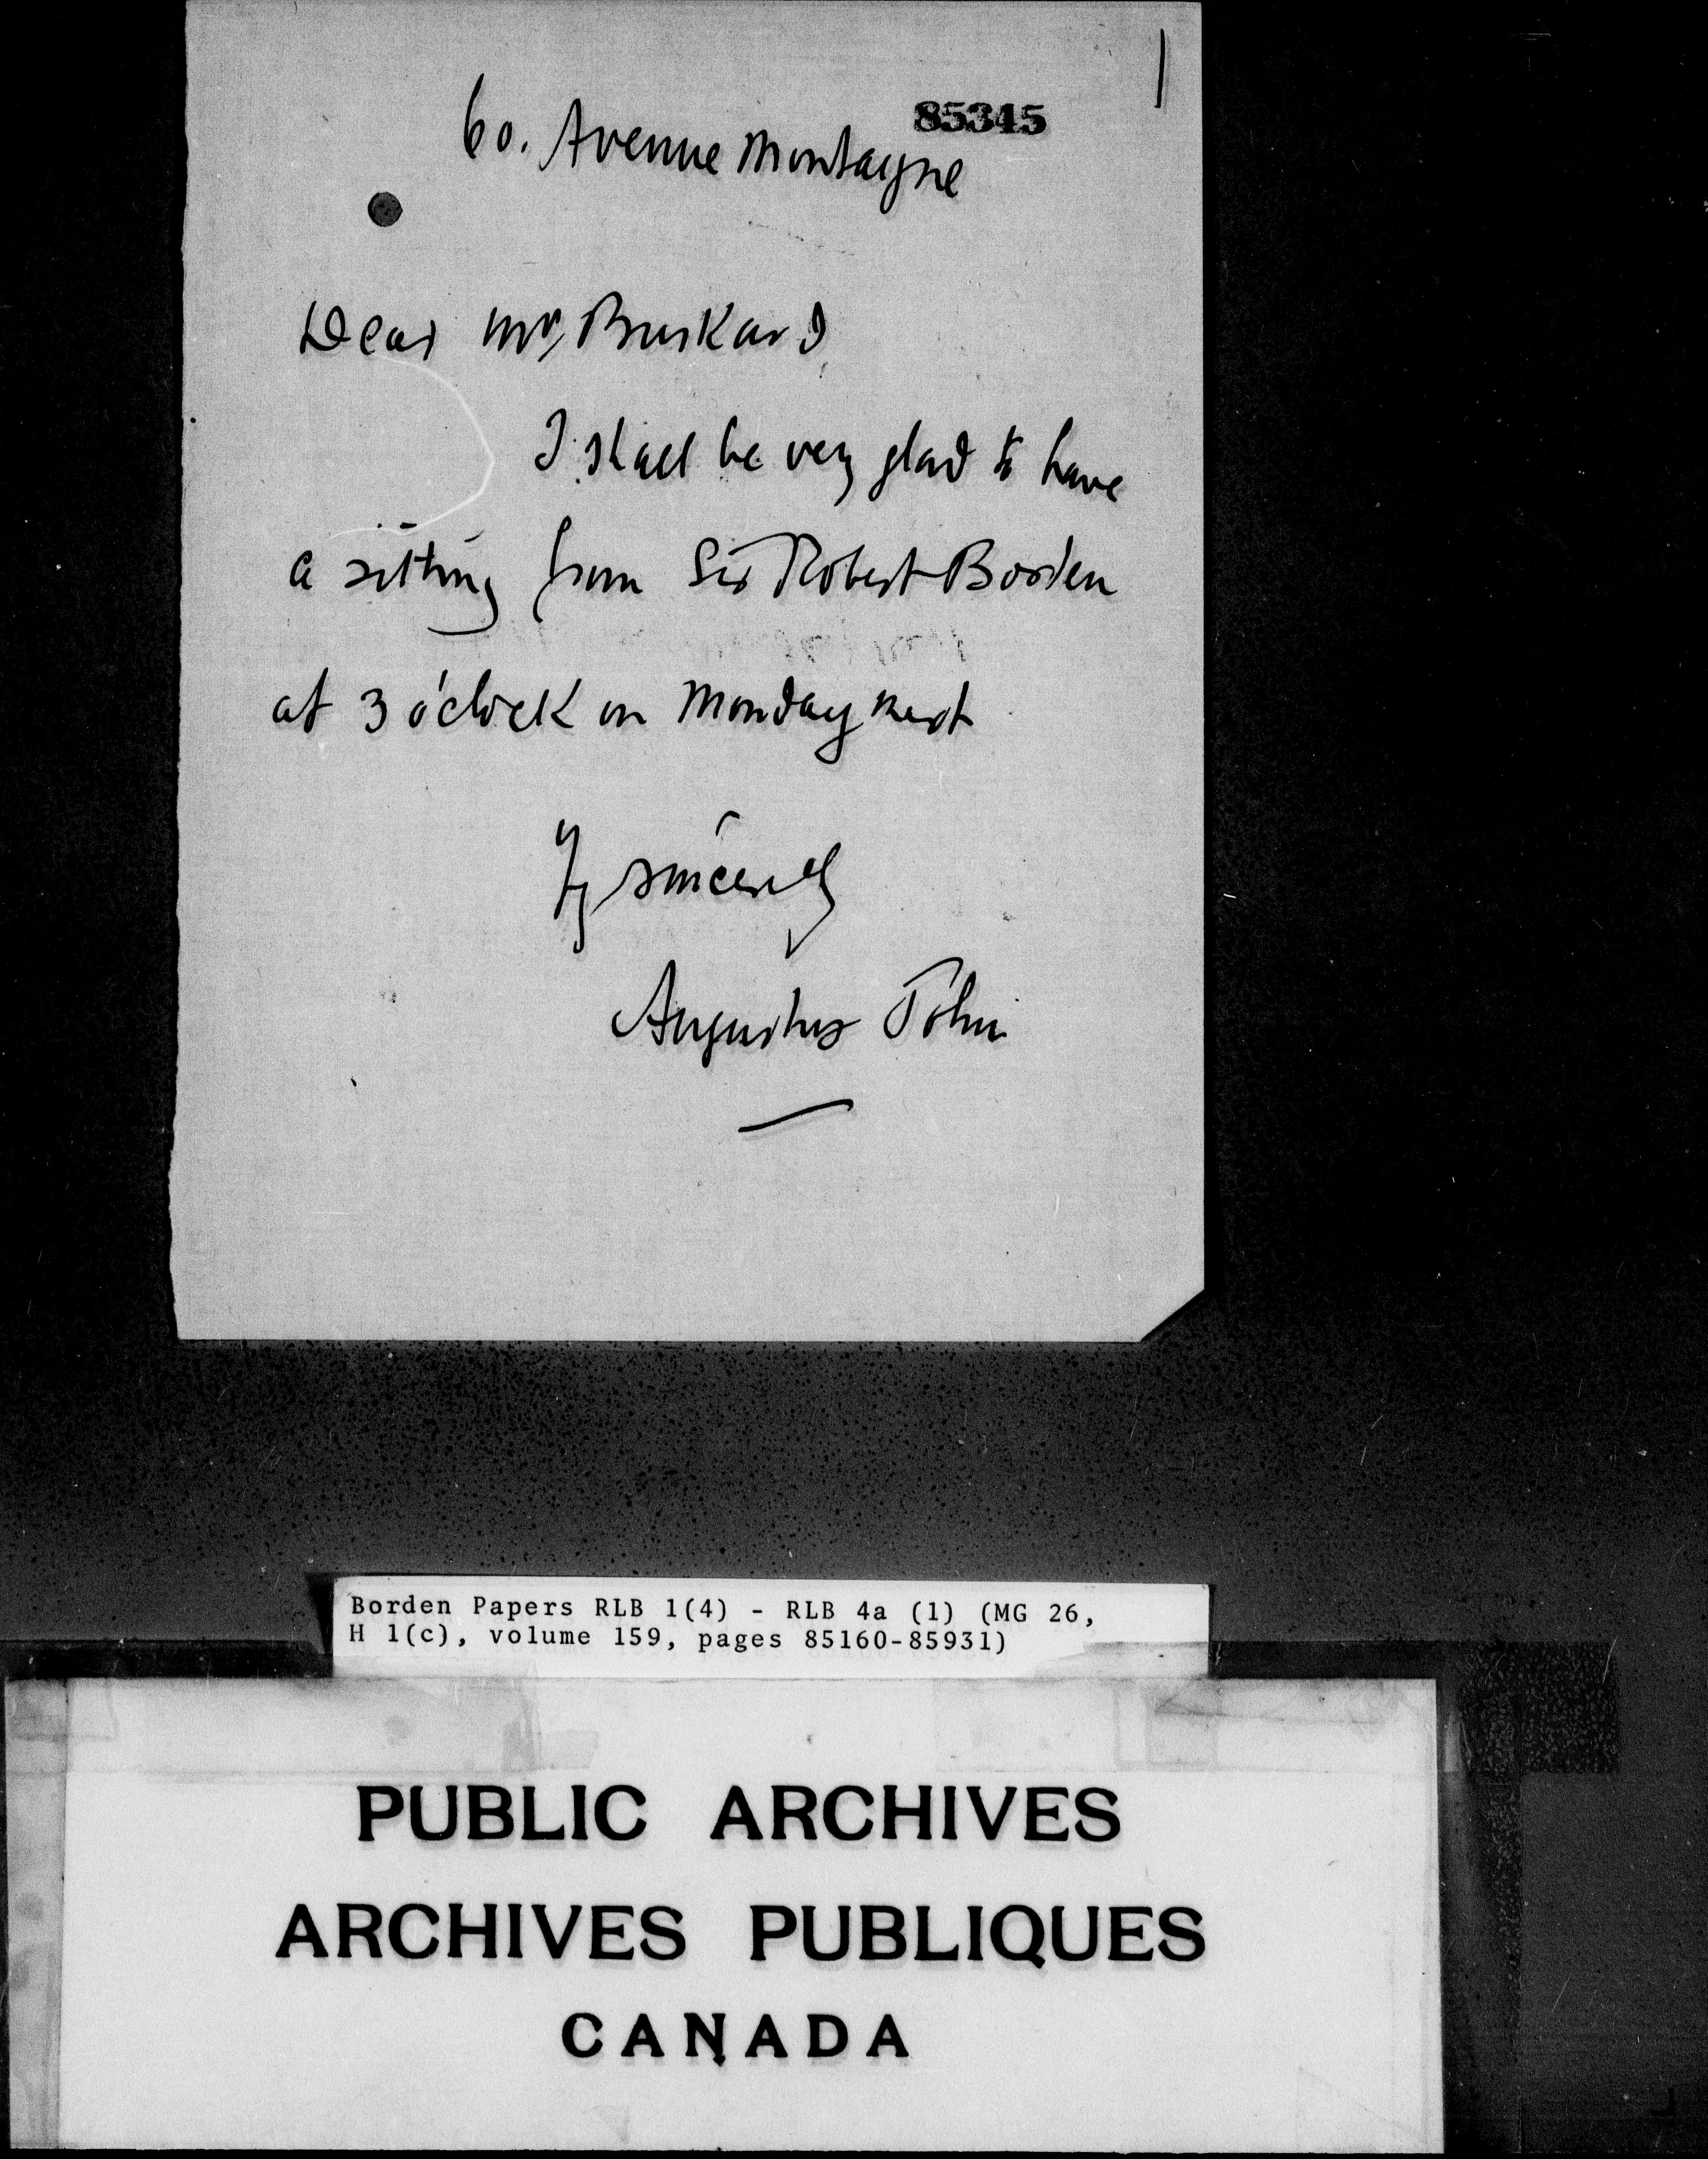 85345
60. Avenue Montaigne
Dear Mr, Buskard
I shall be very glad to have
a sitting from Sir Robert Borden
at 3 o'clock on Monday next
Yrs sincerely
Augustus John
Borden Papers RLB 1(4) - RLB 4a (1) (MG 26,
H 1(c), volume 159, pages 85160-85931)
PUBLIC ARCHIVES
ARCHIVES PUBLIQUES
CANADA